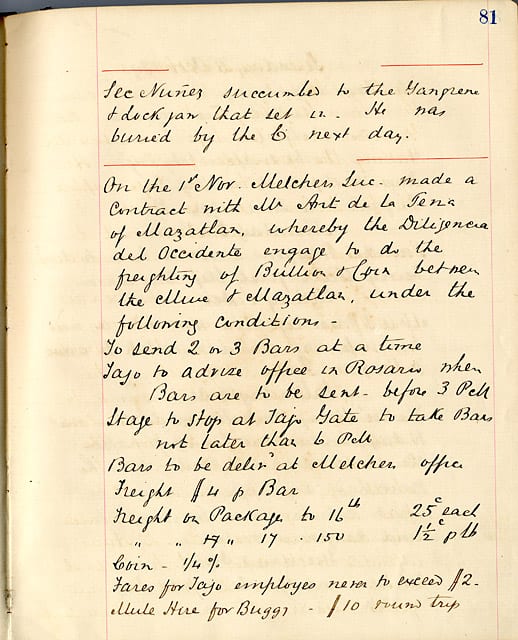 81
Sec Nuñez succumbed to the Gangrene
& lock jaw that set in. He was
buried by the Co next day.
On the 1st Nov. Melchers Suc. made a
Contract with Mr Ant. de la Pena
of Mazatlan, whereby the Diligencia
del Occidente engage to do the
freighting of Bullion & Coin between
the Mine & Mazatlan, under the
following conditions -
To send 2 or 3 Bars at a time
Tajo to advise office in Rosario when
Bars are to be sent - before 3 PM
Stage to stop at Tajo Gate to take Bars
not later than 6 PM
Bars to be delivd at Melchers office
Freight $4 p Bar
Freight on Package to 16 lb 25c each
" " " 17 - 150 1½c p lb
Coin - 1/4 %
Fares for Tajo employes never to exceed $2-
Mule Hire for Buggy - $10 round trip